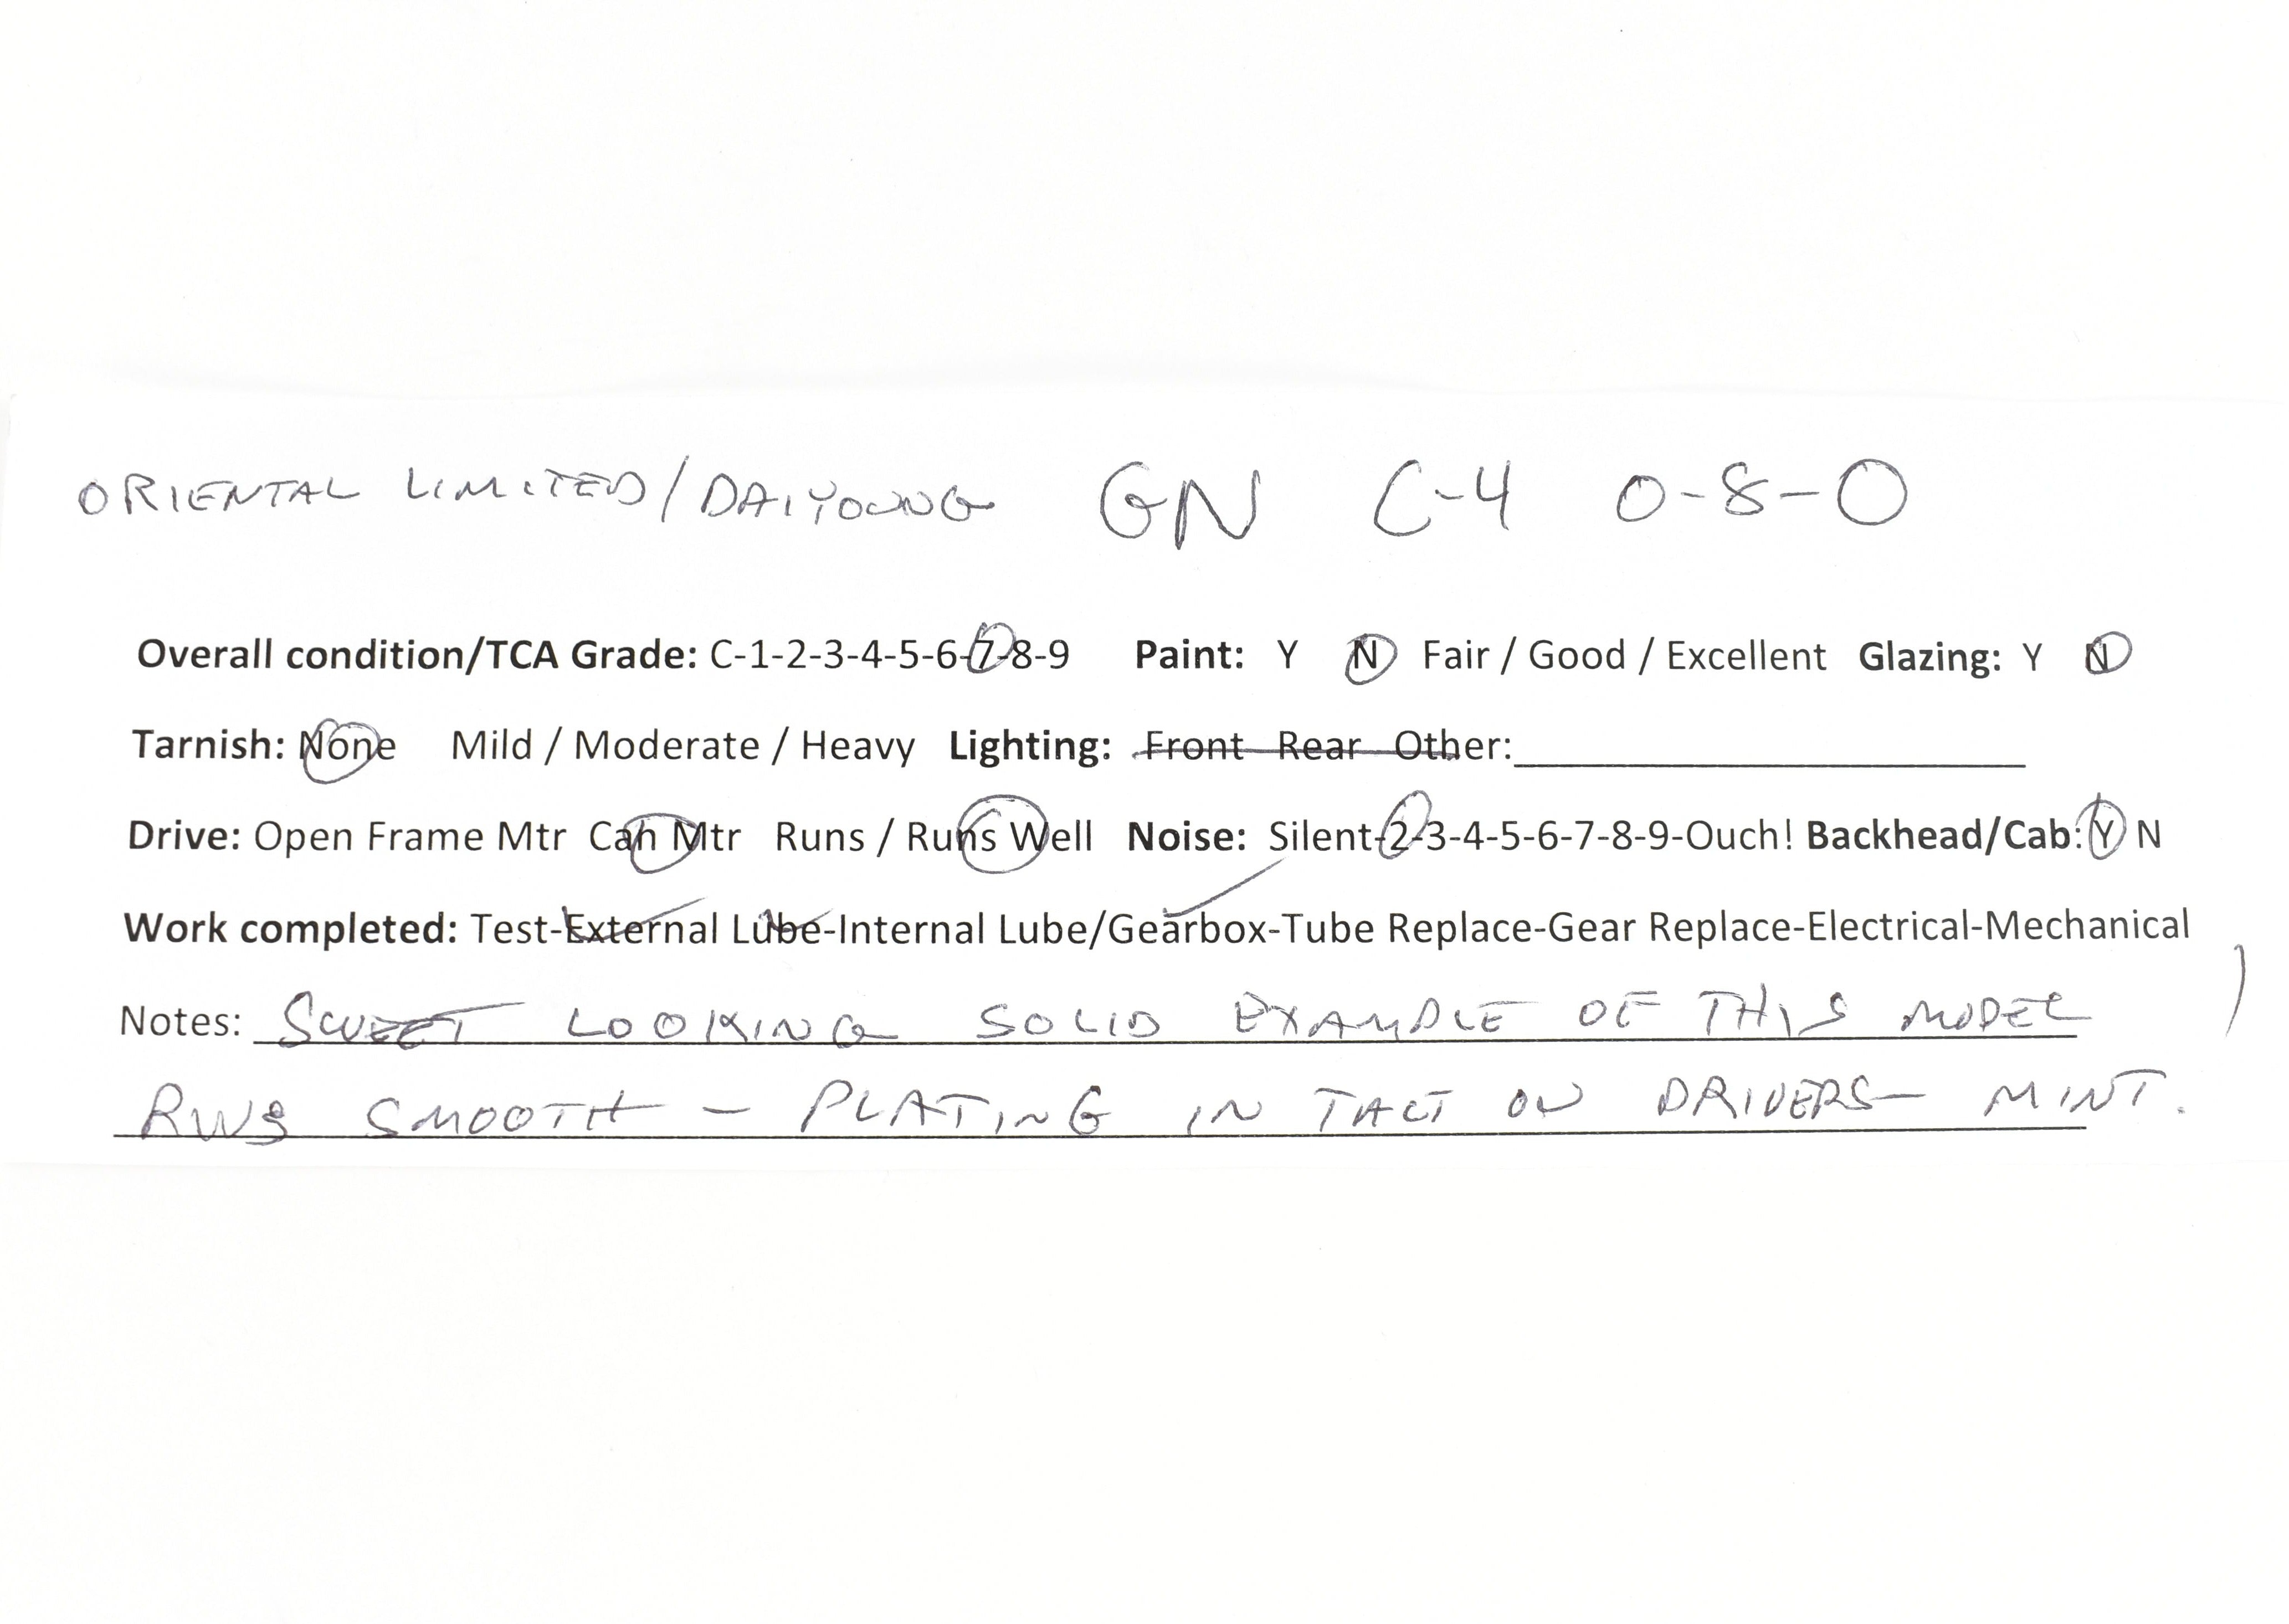 ORIENTAL LIMITED/DAIYOUNG GN C-4 0-8-0
Overall condition/TCA Grade: C-1-2-3-4-5-6-7-8-9 Paint: Y N Fair / Good / Excellent Glazing: Y N
Tarnish: None Mild / Moderate / Heavy Lighting: Front Rear Other:
Drive: Open Frame Mtr Can Mtr Runs / Runs Well Noise: Silent-2-3-4-5-6-7-8-9-Ouch! Backhead/Cab: Y N
Work completed: Test-External Lube-Internal Lube/Gearbox-Tube Replace-Gear Replace-Electrical-Mechanical
Notes: SWEET LOOKING SOLID EXAMPLE OF THIS MODEL
RUNS SMOOTH - PLATING IN TACT ON DRIVERS - MINT.